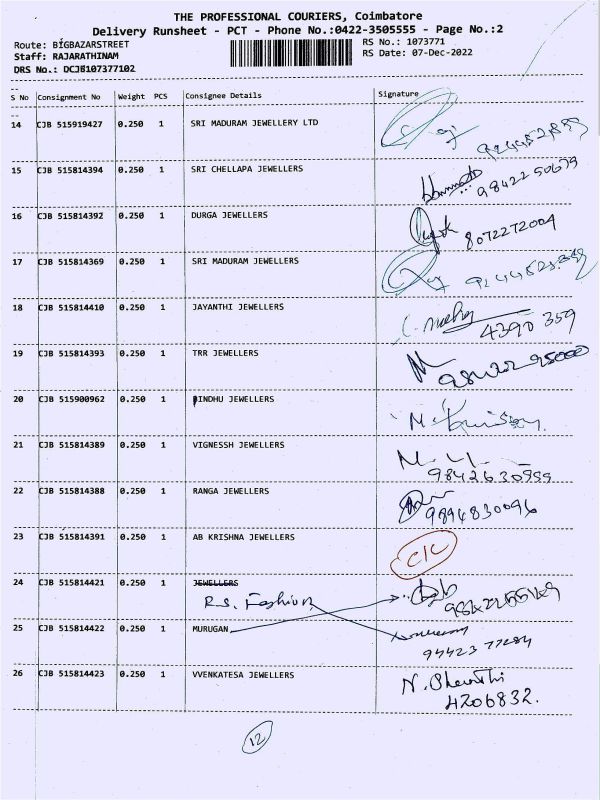 THE PROFESSIONAL COURIERS, Coimbatore
Delivery Runsheet - PCT - Phone No.:0422-3505555 - Page No.:2
Route: BIGBAZARSTREET RS No.: 1073771
Staff: RAJARATHINAM RS Date: 07-Dec-2022
DRS No.: DCJB107377102
S No Consignment No Weight PCS Consignee Details Signature
14 CJB 515919427 0.250 1 SRI MADURAM JEWELLERY LTD
15 CJB 515814394 0.250 1 SRI CHELLAPA JEWELLERS
9842250699
16 CJB 515814392 0.250 1 DURGA JEWELLERS
8072272004
17 CJB 515814369 0.250 1 SRI MADURAM JEWELLERS
18 CJB 515814410 0.250 1 JAYANTHI JEWELLERS
4390 359
19 CJB 515814393 0.250 1 TRR JEWELLERS
20 CJB 515900962 0.250 1 BINDHU JEWELLERS
21 CJB 515814389 0.250 1 VIGNESSH JEWELLERS
9842630999
22 CJB 515814388 0.250 1 RANGA JEWELLERS
9894830096
23 CJB 515814391 0.250 1 AB KRISHNA JEWELLERS
C/C
24 CJB 515814421 0.250 1 JEWELLERS
R.S. Fashion
25 CJB 515814422 0.250 1 MURUGAN
94423 77284
26 CJB 515814423 0.250 1 VVENKATESA JEWELLERS
4206832.
12